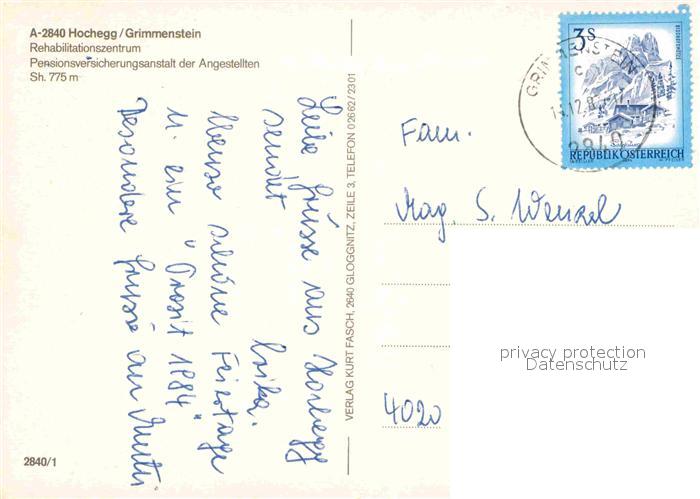 A-2840 Hochegg/Grimmenstein
Rehabilitationszentrum
Pensionsversicherungsanstalt der Angestellten
Sh. 775 m
Liebe Grüsse aus Hochegg
sendet
Erika.
Ebenso schöne Feiertage
u. ein "Prosit 1984"
Besondere Grüsse an Mutti.
2840/1
VERLAG KURT FASCH, 2640 GLOGGNITZ, ZEILE 3, TELEFON 02662/2301
3s
REPUBLIK ÖSTERREICH
GRIMMENSTEIN
2840
Fam.
Mag. S. Wenzel
4020
privacy protection
Datenschutz